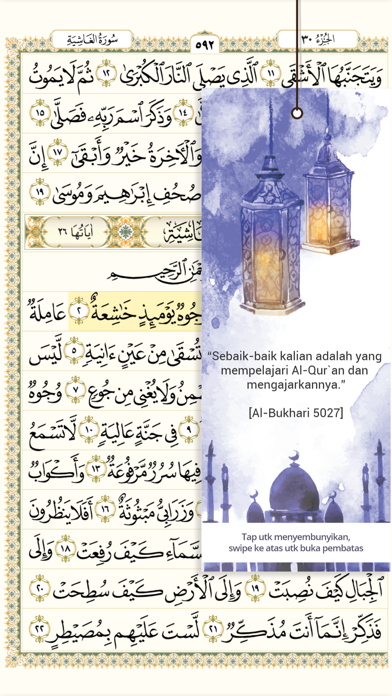 الجُزْءُ ٣٠
٥٩٢
سُورَةُ الغَاشِيَةِ
وَيَتَجَنَّبُهَا ٱلْأَشْقَى ١١ ٱلَّذِى يَصْلَى ٱلنَّارَ ٱلْكُبْرَىٰ ١٢ ثُمَّ لَا يَمُوتُ
١٤ وَذَكَرَ ٱسْمَ رَبِّهِۦ فَصَلَّىٰ ١٥
وَٱلْأَخِرَةُ خَيْرٌ وَأَبْقَىٰٓ ١٧ إِنَّ
صُحُفِ إِبْرَٰهِيمَ وَمُوسَىٰ ١٩
آيَاتُهَا ٢٦
ٱلرَّحِيمِ
وُجُوهٌ يَوْمَئِذٍ خَٰشِعَةٌ ٢ عَامِلَةٌ
تُسْقَىٰ مِنْ عَيْنٍ ءَانِيَةٍ ٥ لَّيْسَ
وَلَا يُغْنِى مِن جُوعٍ ٧ وُجُوهٌ
٩ فِى جَنَّةٍ عَالِيَةٍ ١٠ لَّا تَسْمَعُ
فِيهَا سُرُرٌ مَّرْفُوعَةٌ ١٣ وَأَكْوَابٌ
وَزَرَابِىُّ مَبْثُوثَةٌ ١٦ أَفَلَا يَنظُرُونَ
ٱلسَّمَآءِ كَيْفَ رُفِعَتْ ١٨ وَإِلَى
ٱلْجِبَالِ كَيْفَ نُصِبَتْ ١٩ وَإِلَى ٱلْأَرْضِ كَيْفَ سُطِحَتْ ٢٠
فَذَكِّرْ إِنَّمَآ أَنتَ مُذَكِّرٌ ٢١ لَّسْتَ عَلَيْهِم بِمُصَيْطِرٍ ٢٢
“Sebaik-baik kalian adalah yang
mempelajari Al-Qur`an dan
mengajarkannya.”
[Al-Bukhari 5027]
Tap utk menyembunyikan,
swipe ke atas utk buka pembatas